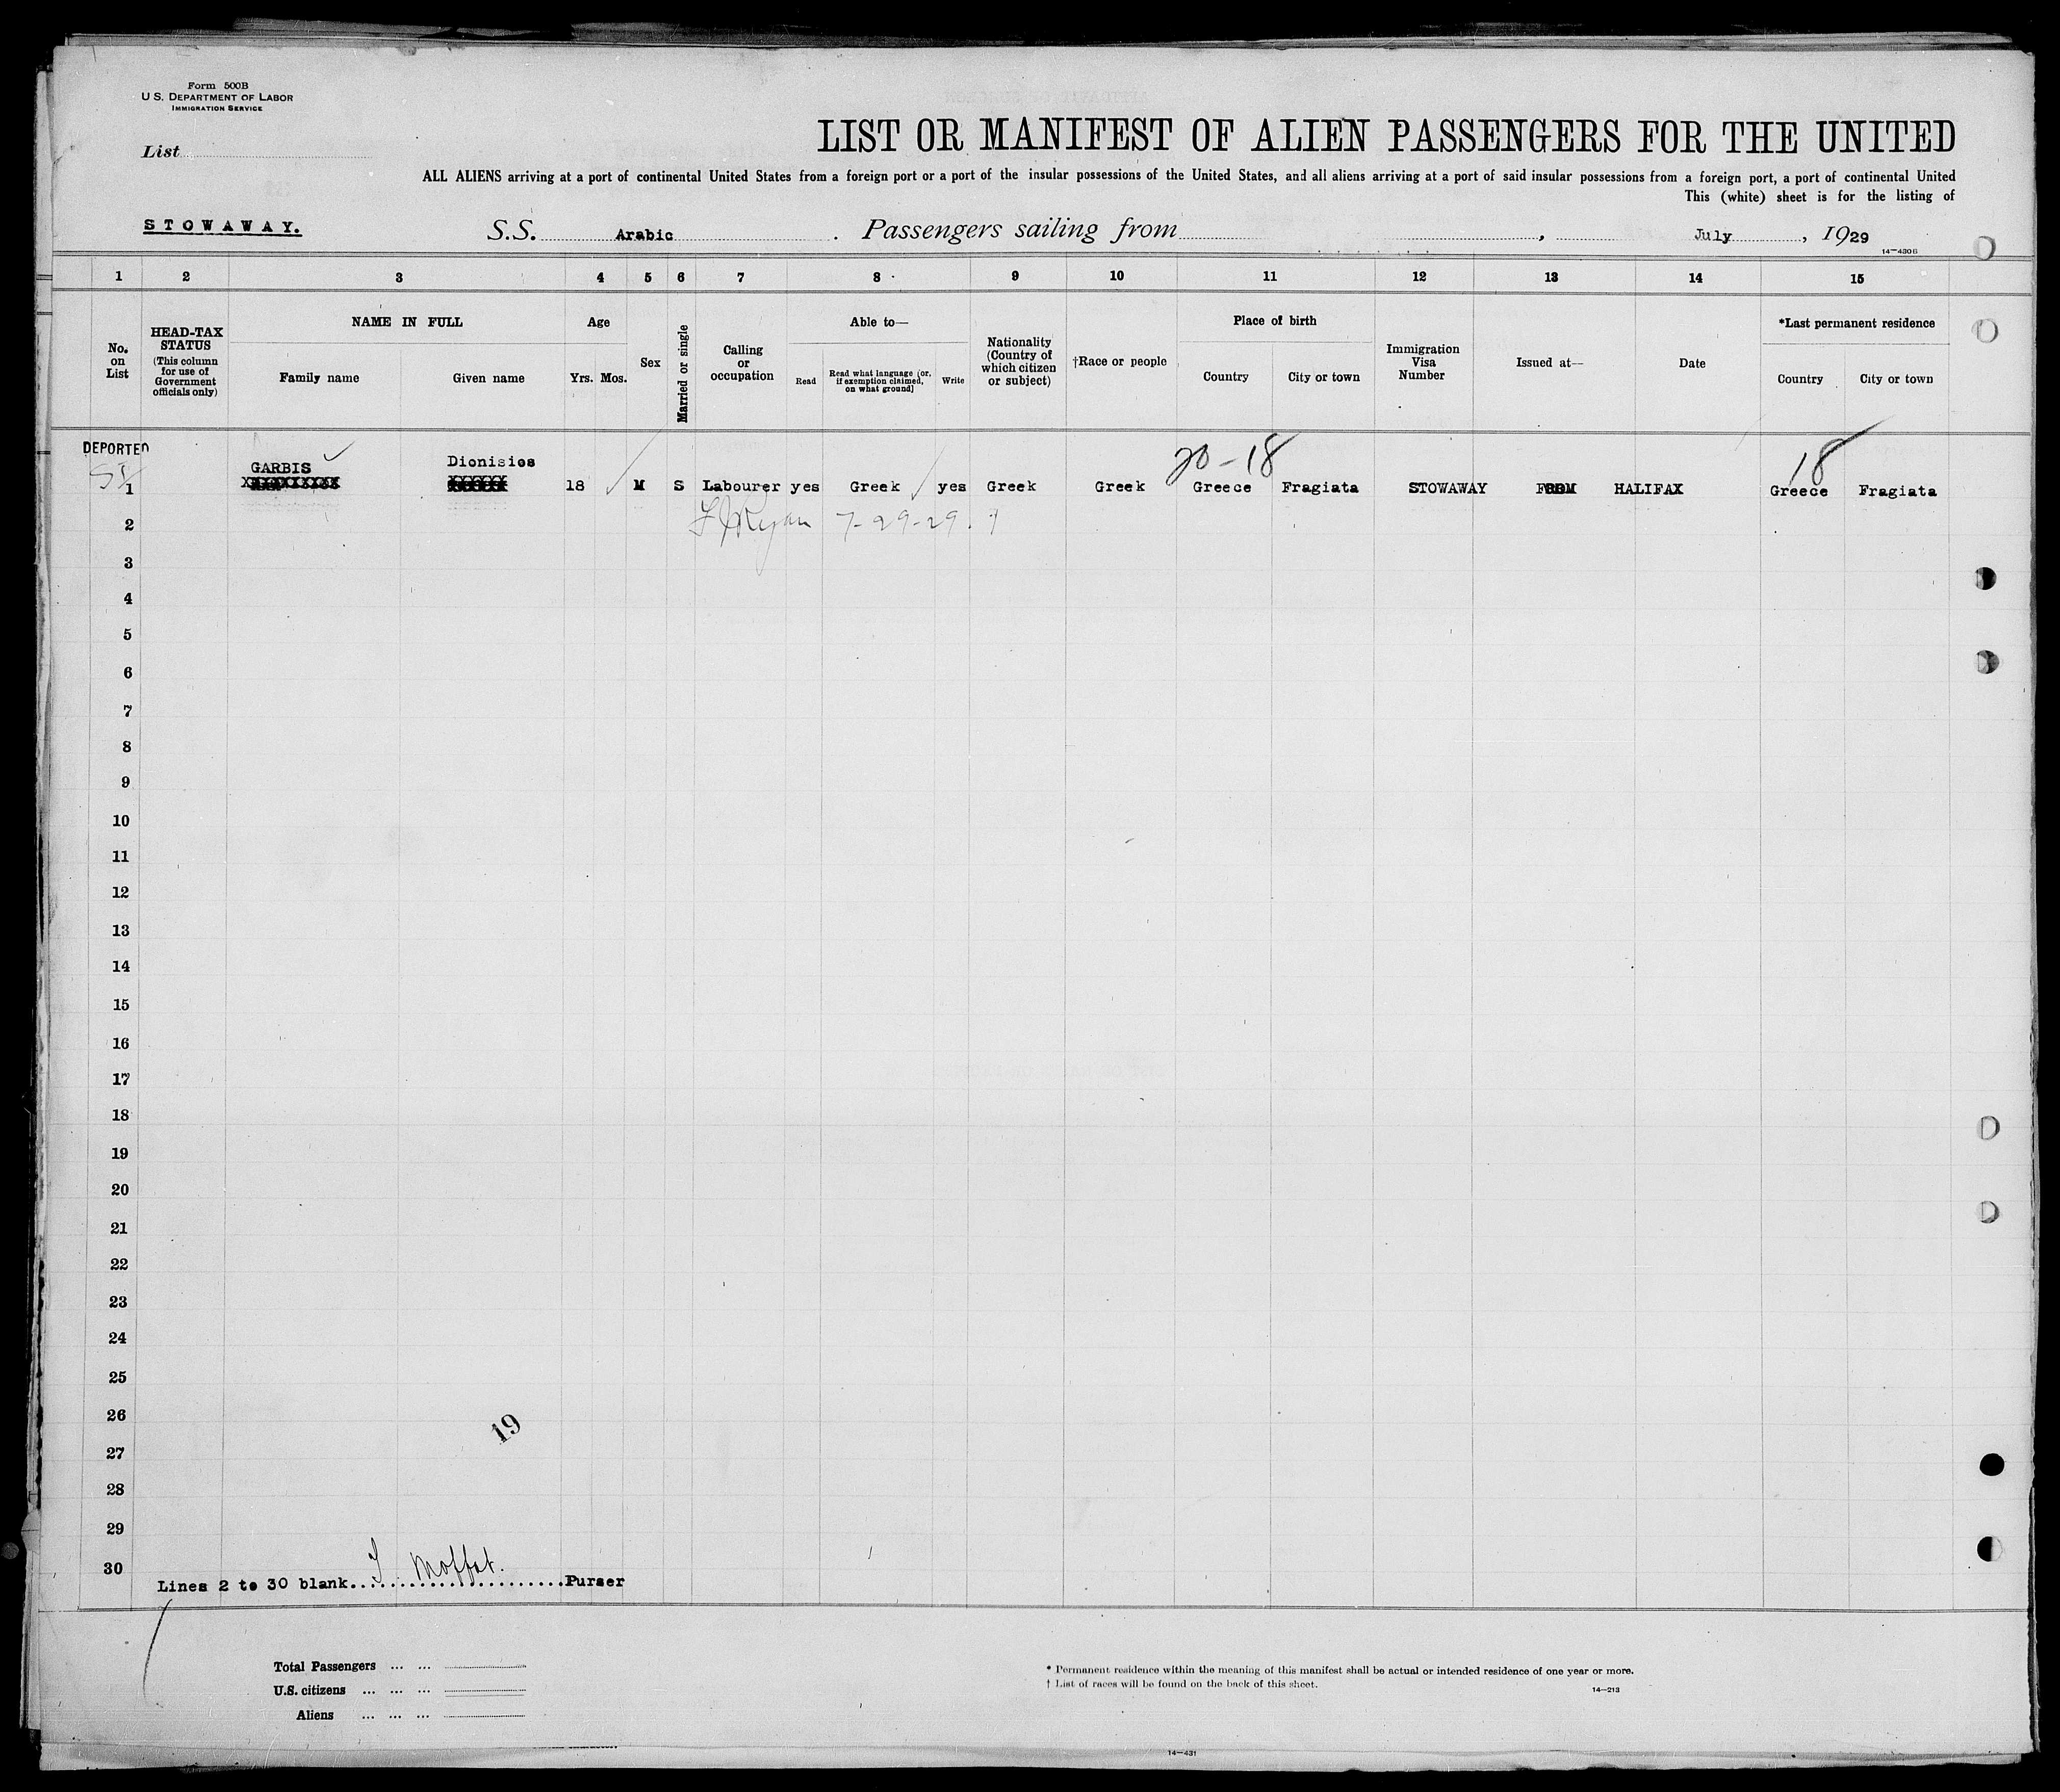 Form 500B
U. S. DEPARTMENT OF LABOR
IMMIGRATION SERVICE
List
LIST OR MANIFEST OF ALIEN PASSENGERS FOR THE UNITED
ALL ALIENS arriving at a port of continental United States from a foreign port or a port of the insular possessions of the United States, and all aliens arriving at a port of said insular possessions from a foreign port, a port of continental United
This (white) sheet is for the listing of
STOWAWAY. S.S. Arabic . Passengers sailing from , July , 1929
14—4306
1 2 3 4 5 6 7 8 9 10 11 12 13 14 15
No. on List
HEAD-TAX STATUS (This column for use of Government officials only)
NAME IN FULL
Family name Given name
Age
Yrs. Mos.
Sex
Married or single
Calling or occupation
Able to—
Read
Read what language [or, if exemption claimed, on what ground]
Write
Nationality (Country of which citizen or subject)
†Race or people
Place of birth
Country City or town
Immigration Visa Number
Issued at—
Date
*Last permanent residence
Country City or town
DEPORTED
20-18 18
GARBIS Dionisios
1 18 M S Labourer yes Greek yes Greek Greek Greece Fragiata STOWAWAY FROM HALIFAX Greece Fragiata
2 Ryan 7-29-29.
3
4
5
6
7
8
9
10
11
12
13
14
15
16
17
18
19
20
21
22
23
24
25
26
19
27
28
29
30
Lines 2 to 30 blank. Moffat. Purser
Total Passengers ... ...
U.S. citizens ... ... ...
Aliens ... ... ...
* Permanent residence within the meaning of this manifest shall be actual or intended residence of one year or more.
† List of races will be found on the back of this sheet.
14—213
14—431